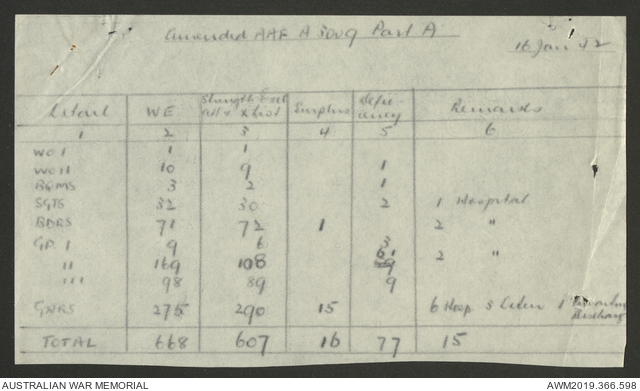 amended AAF A 3009 Part A
16 Jan 42
Detail WE Strength Excl Surplus defic- Remarks
att & X list iency
1 2 3 4 5 6
WO I 1 1
WO II 10 9 1
BQMS 3 2 1
SGTS 32 30 2 1 Hospital
BDRS 71 72 1 2 "
GP. I 9 6 3
II 169 108 61 2 "
III 98 89 9
GNRS 275 290 15 6 Hosp 1
TOTAL 668 607 16 77 15
AUSTRALIAN WAR MEMORIAL
AWM2019.366.598